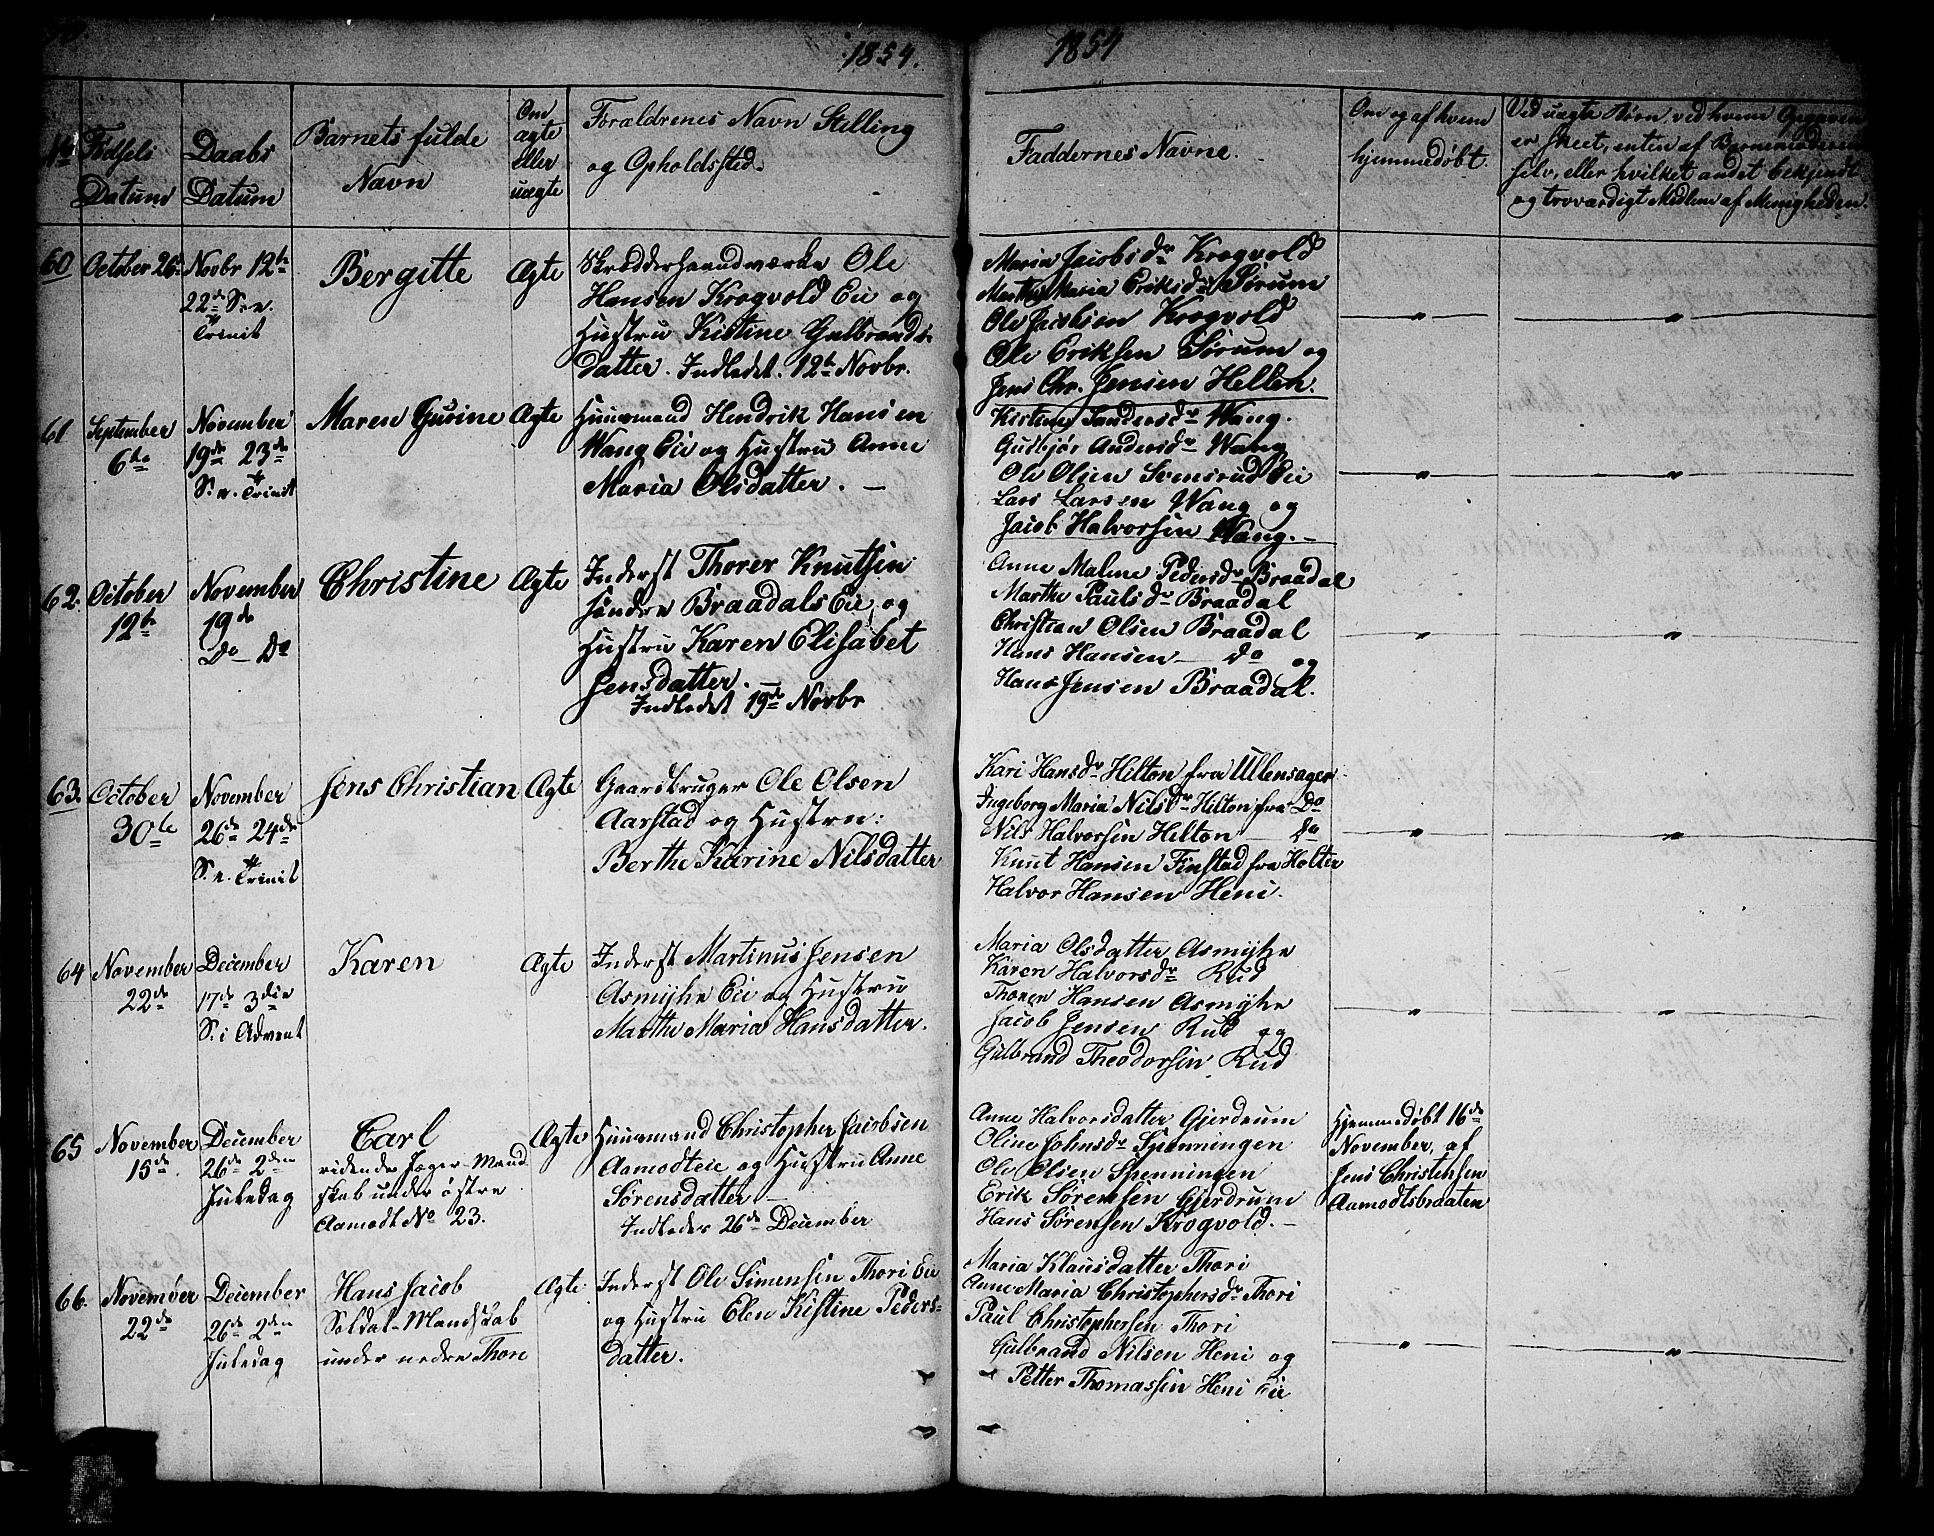 1854.
1854
No Fødsels Datum
Daabs Datum
Barnets fulde Navn
Om ægte eller uægte
Forældrenes Navn Stilling
og Opholdssted.
Faddernes Navne.
Om og af hvem
hjemmedøbt.
Ved uægte Børn, ved hvem Opgaven
er skeet, enten af Barnemoderen
selv, eller hvilket andet bekjendt
og troværdigt Medlem af Menigheden.
60
October 26
Novbr 12te
22de S. e.
Trinit
Bergitte
Ægte
Skrædderhaandværker Ole
Hansen Krogvold Eie og
Hustru Kistine Gulbrands-
datter. Indledet. 12te Novbr.
Maria Jacobsdr Krogvold
Marthe Maria Eriksdr Sørum
Ole Jacobsen Krogvold
Ole Eriksen Sørum og
Jens Chr. Jensen Hellen.
"
"
61
September
6te
November
19de 23de
S. e. Trinit
Maren Gusine
Ægte
Huusmand Hendrik Hansen
Wang Eie og Hustru Anne
Maria Olsdatter. —
Kistine Sandersdr Wang.
Gudbjør Andersdr Wang
Ole Olsen Svensrud Eie
Lars Larsen Wang og
Jacob Halvorsen Wang. —
"
"
62.
October
12te
November
19de
Do — Do
Christine
Ægte
Inderst Thorer Knutsen
søndre Braadals Eie, og
Hustru Karen Elisabet
Jensdatter.
Indledet 19de Novbr
Anne Malene Pedersdr Braadal
Marthe Paulsdr Braadal
Christian Olsen Braadal
Hans Hansen — do og
Hans Jensen Braadal.
"
"
63.
October
30te
November
26de 24de
S. e. Trinit
Jens Christian
Ægte
Gaardbruger Ole Olsen
Aarstad og Hustru:
Berthe Karine Nilsdatter
Kari Hansdr Hilton fra Ullensager
Ingeborg Maria Nilsdr Hilton fra Do
Nils Halvorsen Hilton — Do
Knut Hansen Finstad fra Holter
Halvor Hansen Heni.
"
"
64
November
22de
December
17de 3die
S. i Advent
Karen
Ægte
Inderst Martinus Jensen
Asmyhr Eie og Hustru
Marthe Maria Hansdatter.
Maria Olsdatter Asmyhr
Karen Halvorsdr Rud
Thoren Hansen Asmyhr
Jacob Jensen Rud og
Gulbrand Theodorsen Rud
"
"
65
November
15de.
December
26de 2den
Juledag
Carl
ridende Jæger-Mand
skab under østre
Aamodt No 23.
Ægte
Huusmand Christopher Jacobsen
Aamodteie og Hustru Anne
Sørensdatter —
Indledes 26de December
Anne Halvorsdatter Gjerdrum
Oline Johnsdr Spenningen
Ole Olsen Spenningen
Erik Sørensen Gjerdrum
Hans Sørensen Krogvold. —
Hjemmedøbt 16de
November, af
Jens Christensen
Aamodtsbraaten
66.
November
22de
December
26de 2den
Juledag
Hans Jacob
Soldat-Mandskab
under nedre Thori
Ægte
Inderst Ole Simensen Thori Eie
og Hustru Elen Kistine Peders-
datter.
Maria Klausdatter Thori
Anne Maria Christophersdr Thori
Paul Christophersen Thori
Gulbrand Nilsen Heni og
Petter Thomassen Heni Eie
"
"